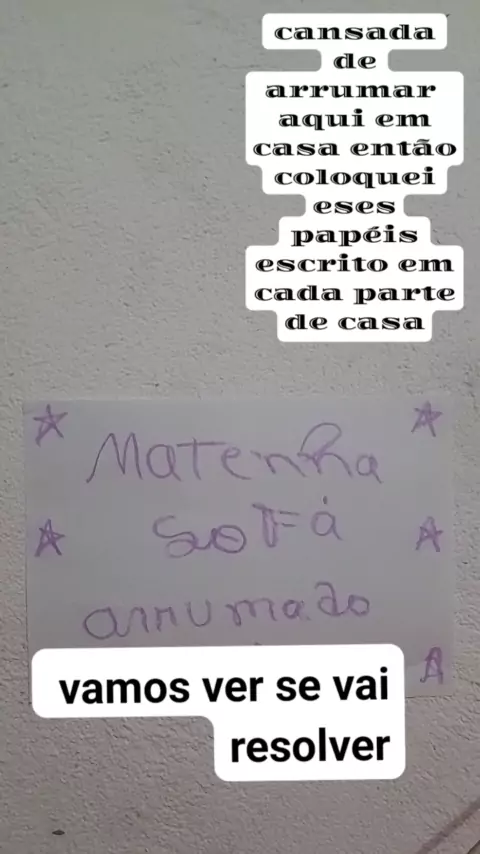 cansada
de
arrumar
aqui em
casa então
coloquei
eses
papéis
escrito em
cada parte
de casa
Matenha
sofá
arrumado
vamos ver se vai
resolver